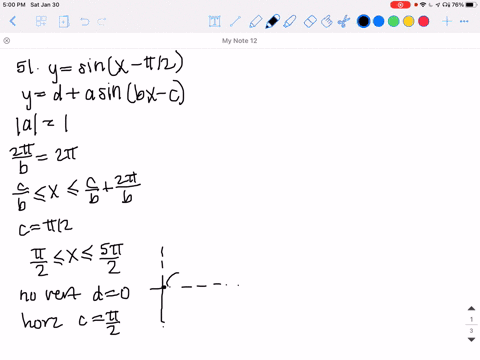 5:00 PM Sat Jan 30
76%
My Note 12
51. y = sin(x - π/2)
y = d + a sin(bx - c)
|a| = 1
2π/b = 2π
c/b ≤ x ≤ c/b + 2π/b
c = π/2
π/2 ≤ x ≤ 5π/2
no vert d = 0
horz c = π/2
1
3